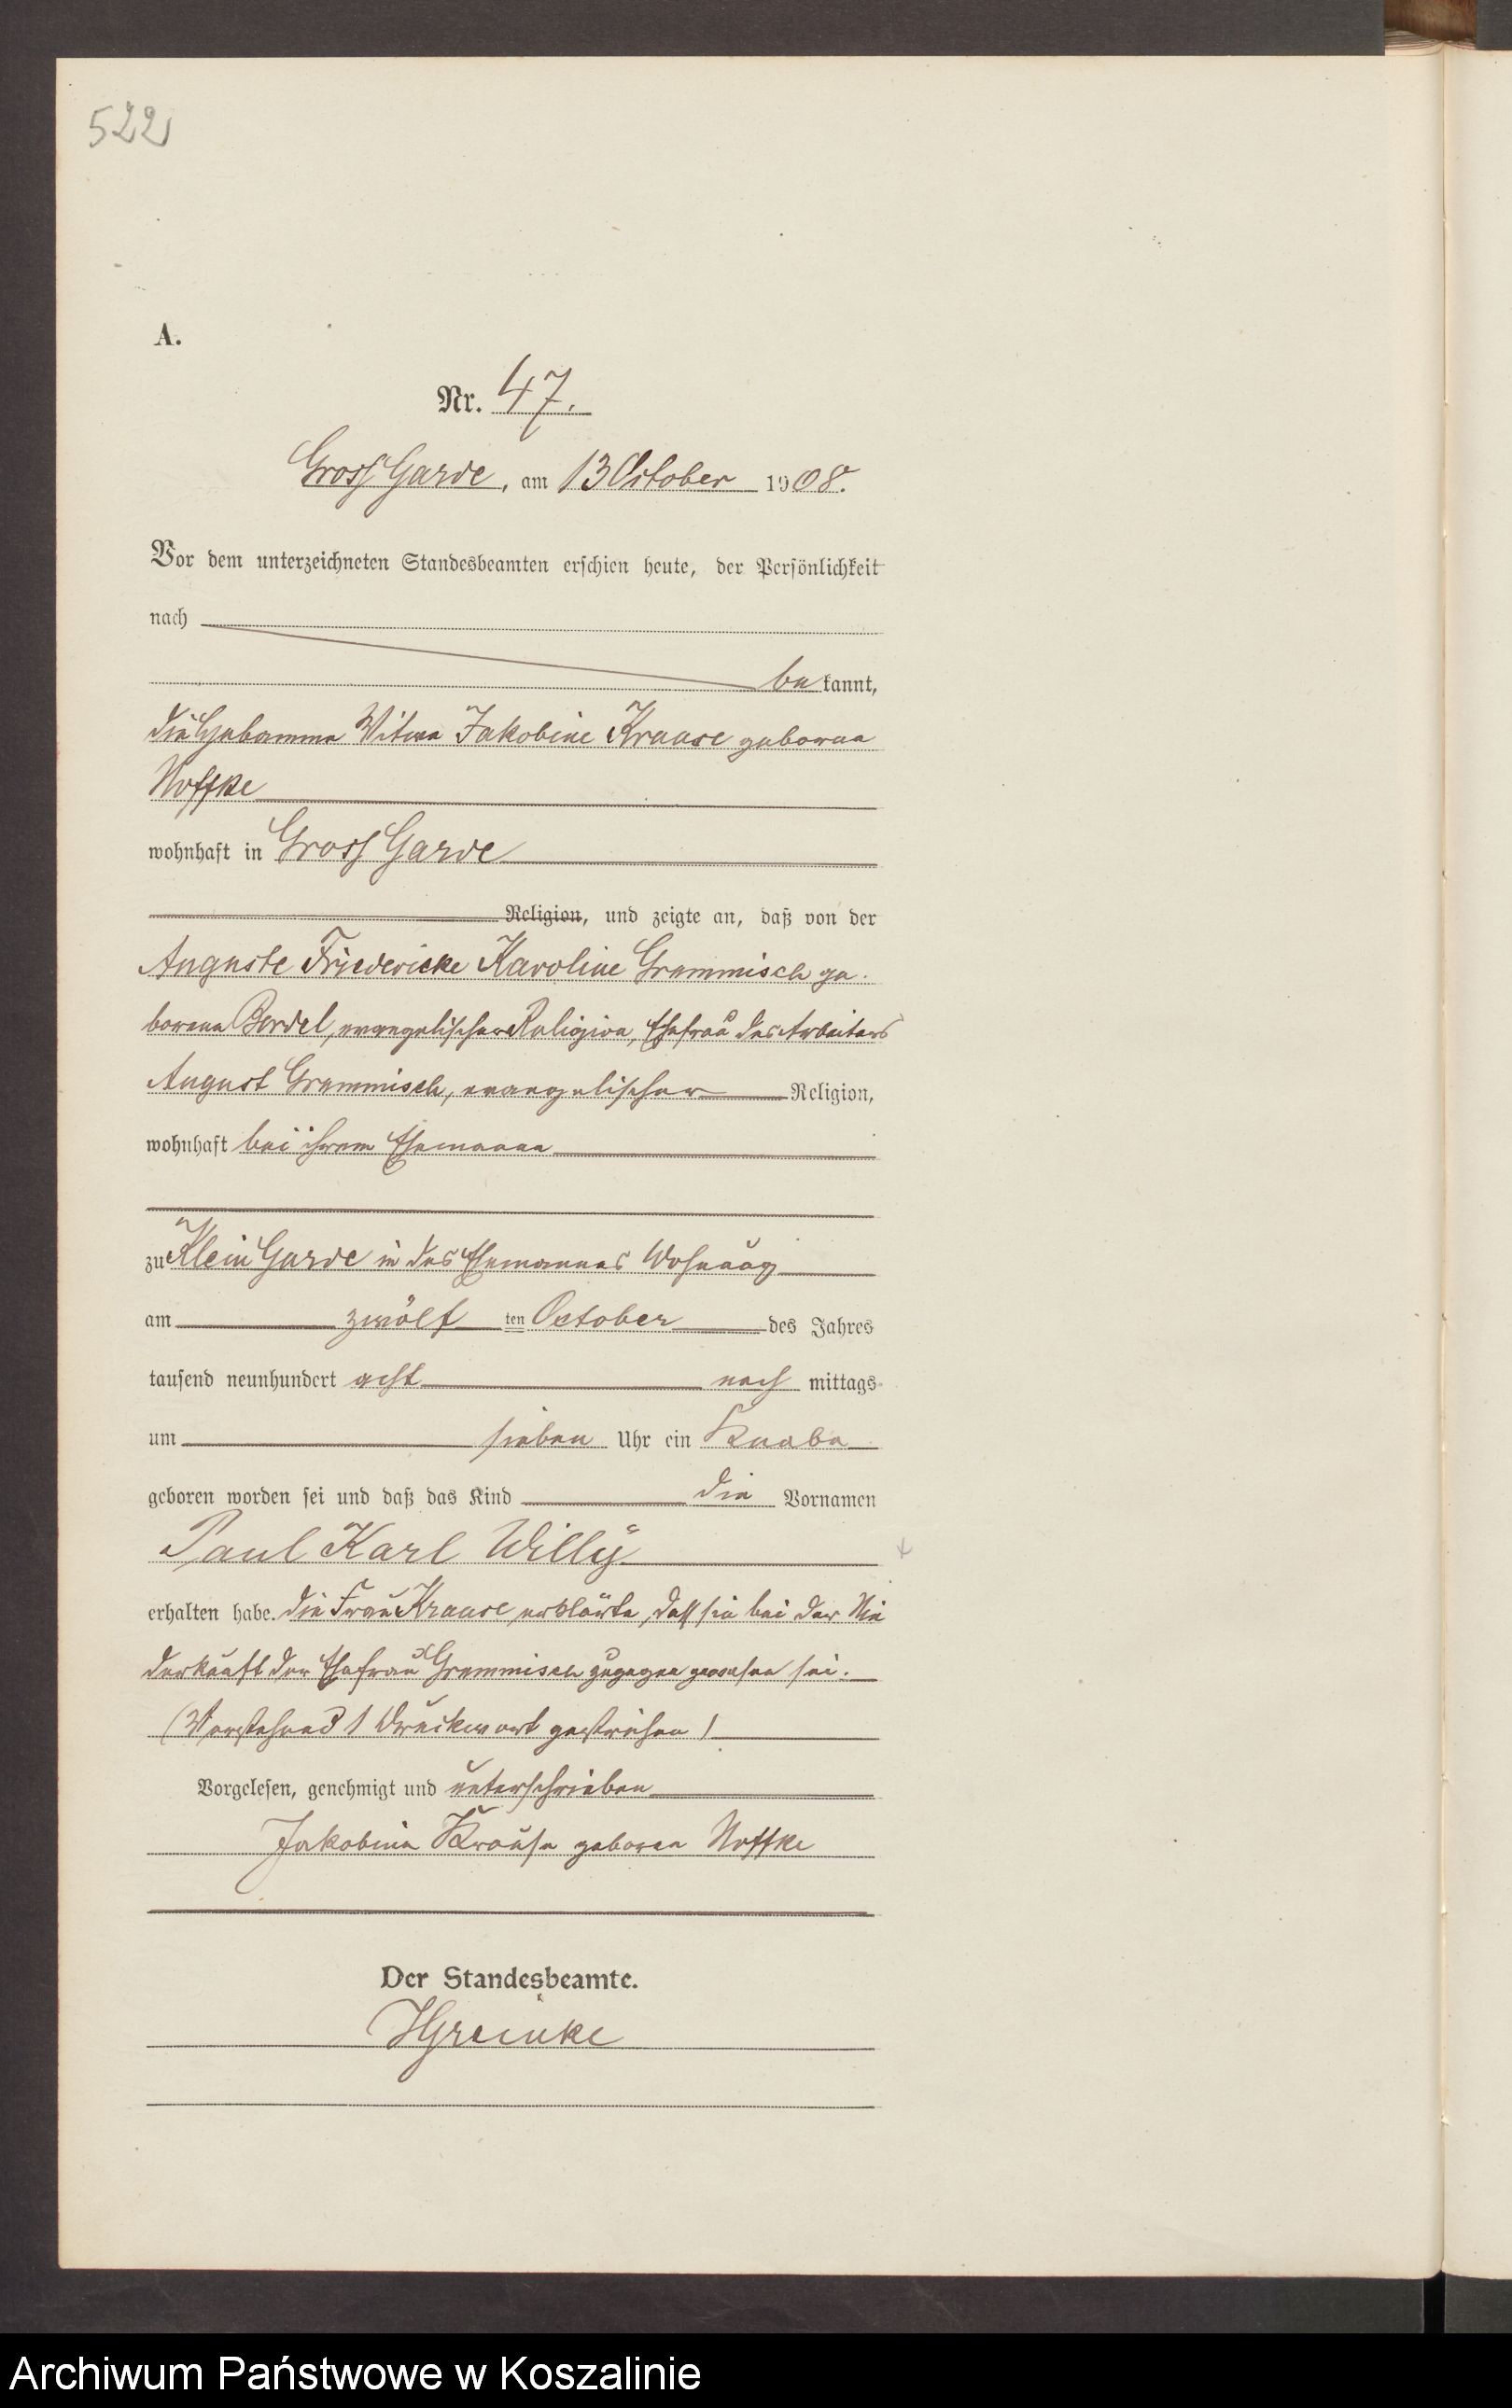 522
A.
Nr. 47.
Gross Garde, am 13 October 1908.
Vor dem unterzeichneten Standesbeamten erschien heute, der Persönlichkeit
nach
bekannt,
die Hebamme Witwe Jakobine Krause geborene
Noffke
wohnhaft in Gross Garde
Religion, und zeigte an, daß von der
Auguste Friedericke Karoline Grammisch ge-
borene Bordel, evangelischer Religion, Ehefrau des Arbeiters
August Grammisch, evangelischer Religion,
wohnhaft bei ihrem Ehemanne
zu Klein Garde in des Ehemannes Wohnung
am zwölf ten October des Jahres
tausend neunhundert acht nach mittags
um sieben Uhr ein Knabe
geboren worden sei und daß das Kind die Vornamen
Paul Karl Willy
erhalten habe. Die Frau Krause erklärte, daß sie bei der Nie
derkunft der Ehefrau Grammisch zugegen gewesen sei.
(Vorstehend 1 Druckwort gestrichen)
Vorgelesen, genehmigt und unterschrieben
Jakobine Krause geboren Noffke
Der Standesbeamte.
Greinke
Archiwum Państwowe w Koszalinie